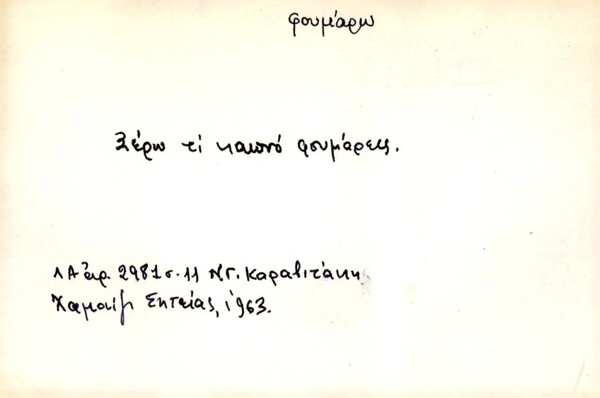 φουμάρω
Ξέρω τί καπνό φουμάρεις.
ΛΑ ἀρ. 2981 σ. 11 Ν. Γ. Καραβιτάκη
Χαμαίζι Σητείας, 1963.